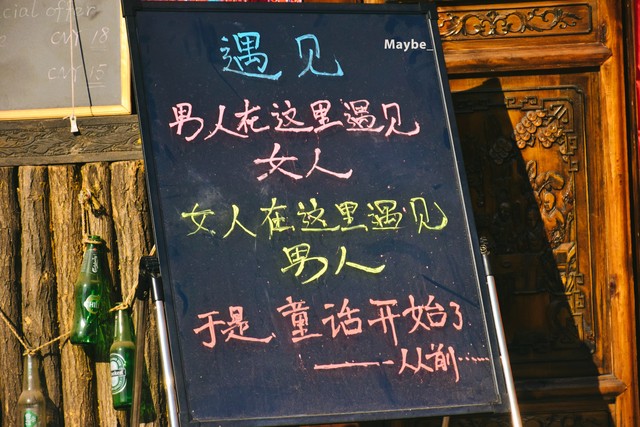 cial offer
CNY 18
CNY 15
Maybe_
遇见
男人在这里遇见
女人
女人在这里遇见
男人
于是 童话开始了
——从前……